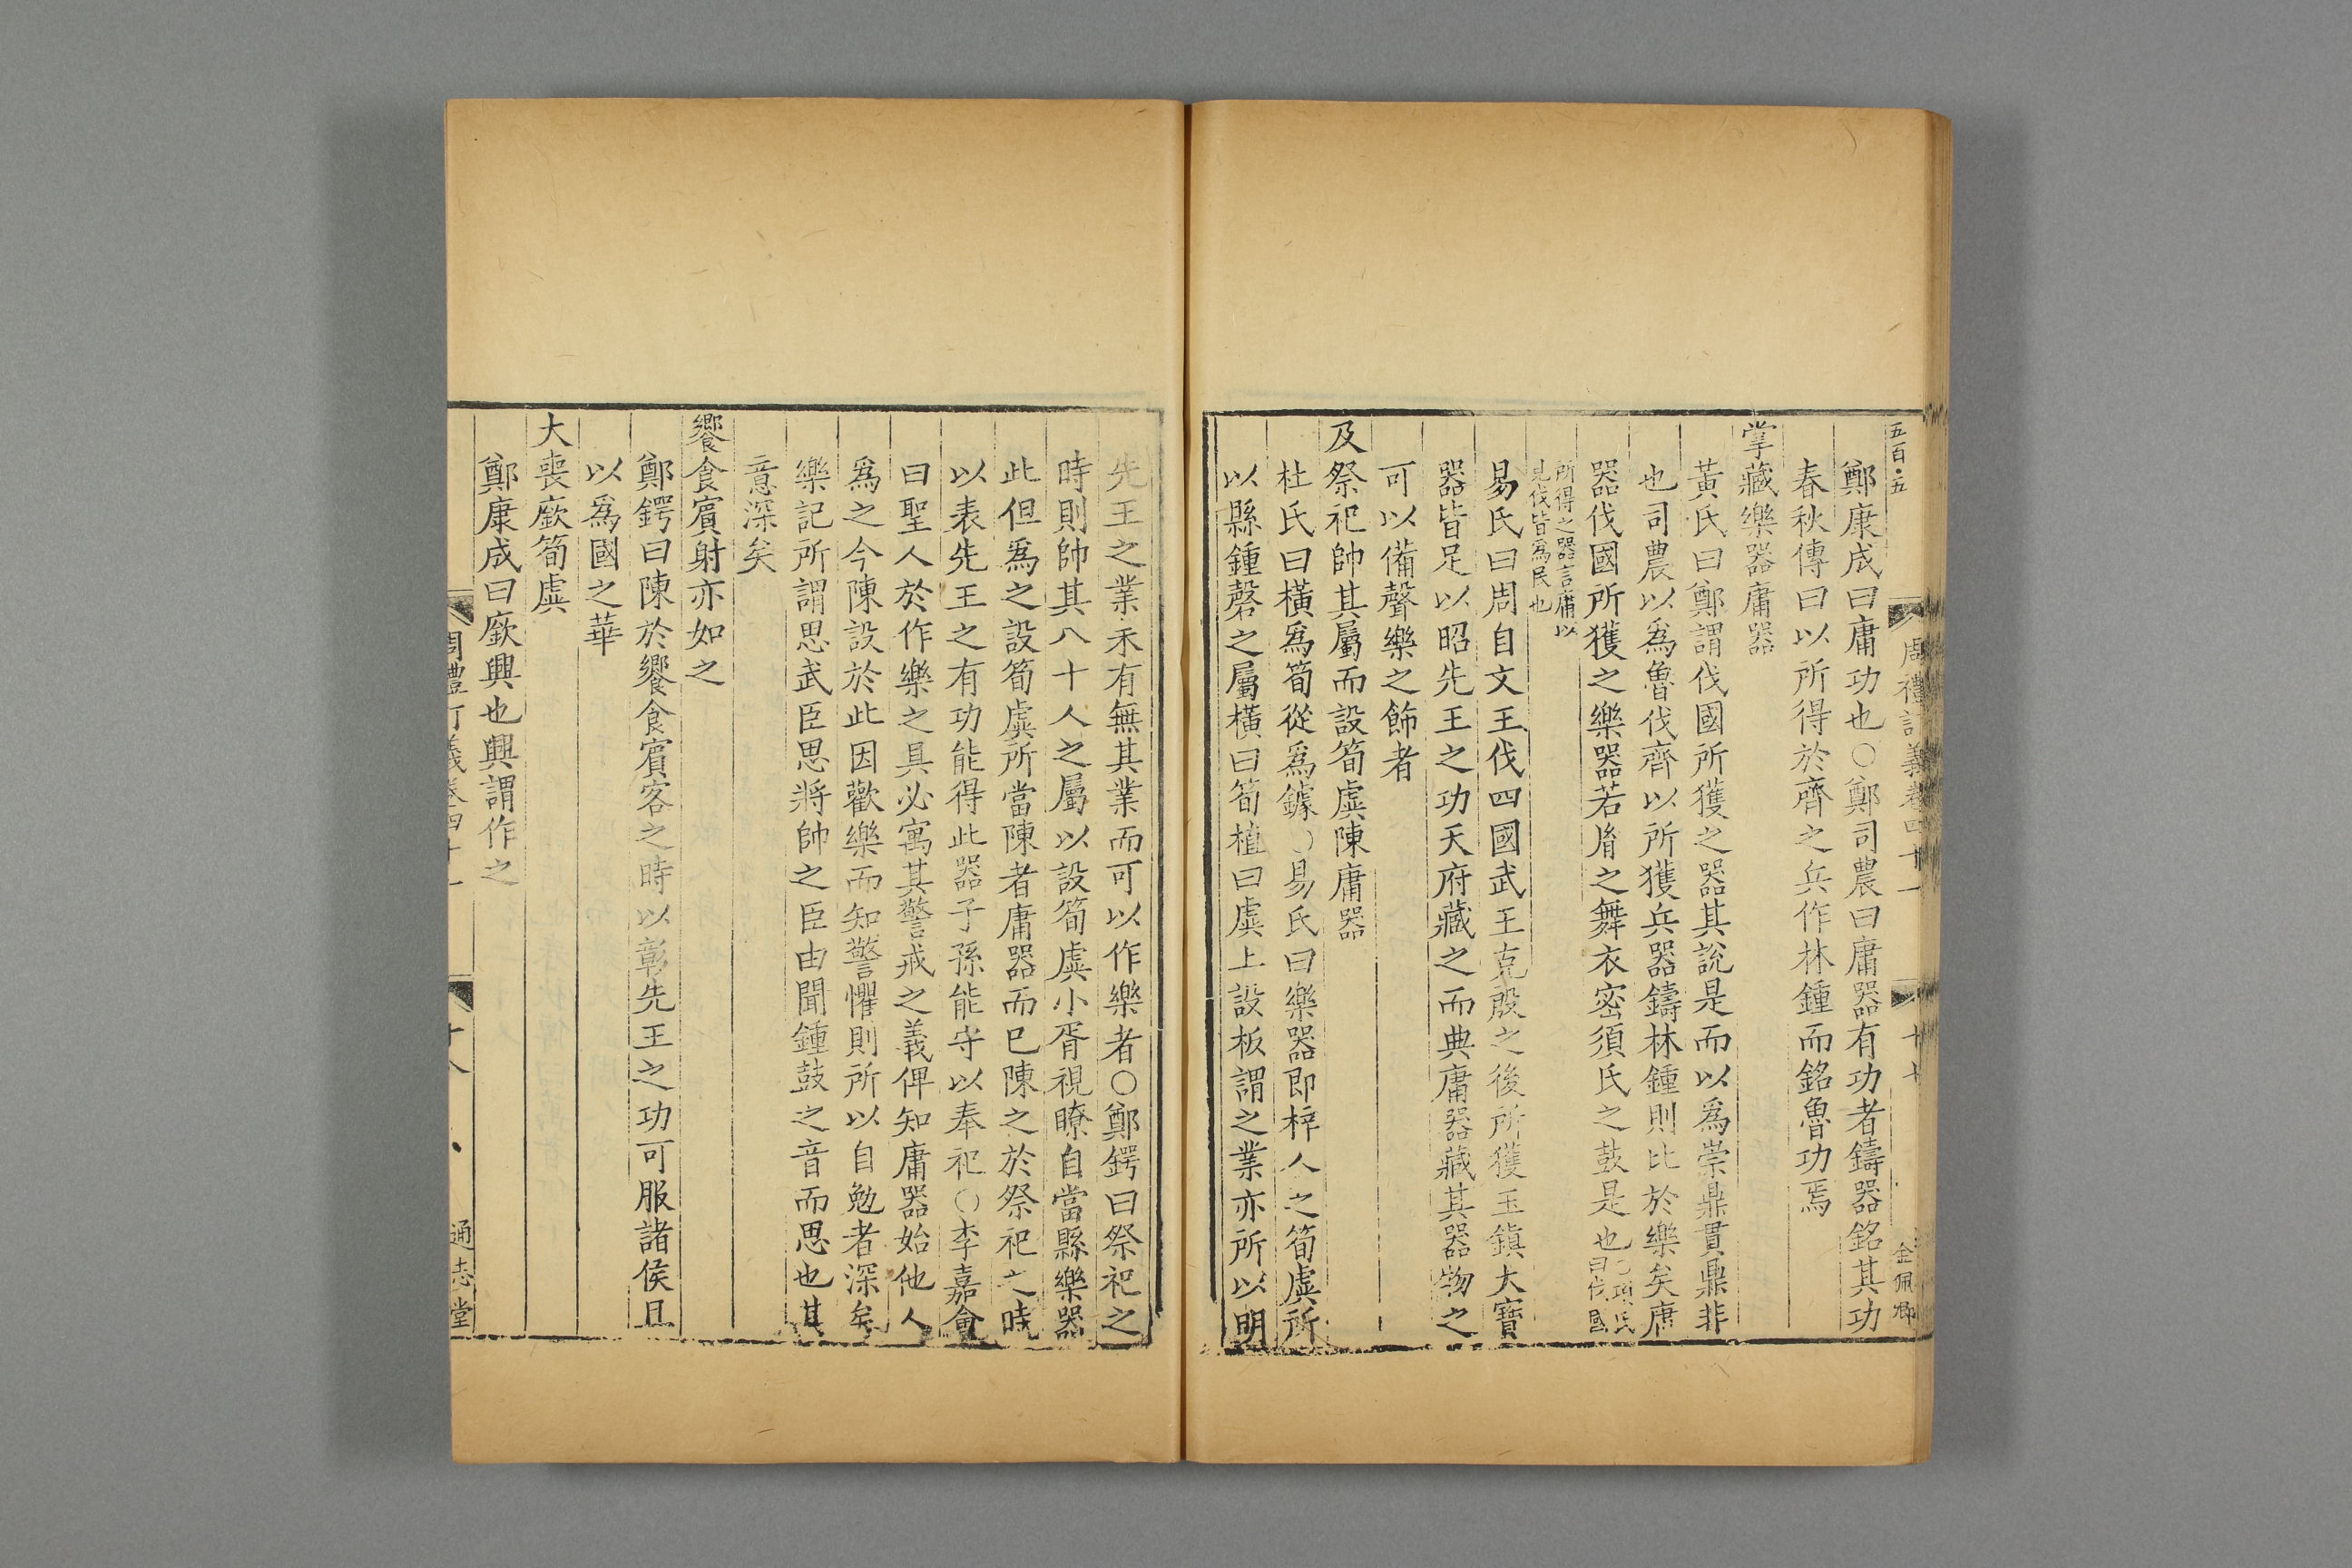 五百·五
周禮訂義卷四十一
十七
金佩卿
鄭康成曰庸功也○鄭司農曰庸器有功者鑄器銘其功
春秋傳曰以所得於齊之兵作林鍾而銘魯功焉
掌藏樂器庸器
黃氏曰鄭謂伐國所獲之器其說是而以爲崇鼎貫鼎非
也司農以爲魯伐齊以所獲兵器鑄林鍾則比於樂矣庸
器伐國所獲之樂器若胤之舞衣密須氏之鼓是也○項氏曰伐國
所得之器言庸以
見伐皆爲民也
易氏曰周自文王伐四國武王克殷之後所獲玉鎮大寶
器皆足以昭先王之功天府藏之而典庸器藏其器物之
可以備聲樂之飾者
及祭祀帥其屬而設筍虡陳庸器
杜氏曰橫爲筍從爲鐻○易氏曰樂器即梓人之筍虡所
以縣鍾磬之屬橫曰筍植曰虡上設板謂之業亦所以明
先王之業未有無其業而可以作樂者○鄭鍔曰祭祀之
時則帥其八十人之屬以設筍虡小胥視瞭自當縣樂器
此但爲之設筍虡所當陳者庸器而已陳之於祭祀之時
以表先王之有功能得此器子孫能守以奉祀○李嘉會
曰聖人於作樂之具必寓其警戒之義俾知庸器始他人
爲之今陳設於此因歡樂而知警懼則所以自勉者深矣
樂記所謂思武臣思將帥之臣由聞鍾鼓之音而思也其
意深矣
饗食賓射亦如之
鄭鍔曰陳於饗食賓客之時以彰先王之功可服諸侯且
以爲國之華
大喪廞筍虡
鄭康成曰廞興也興謂作之
周禮訂義卷四十一
十八
通志堂